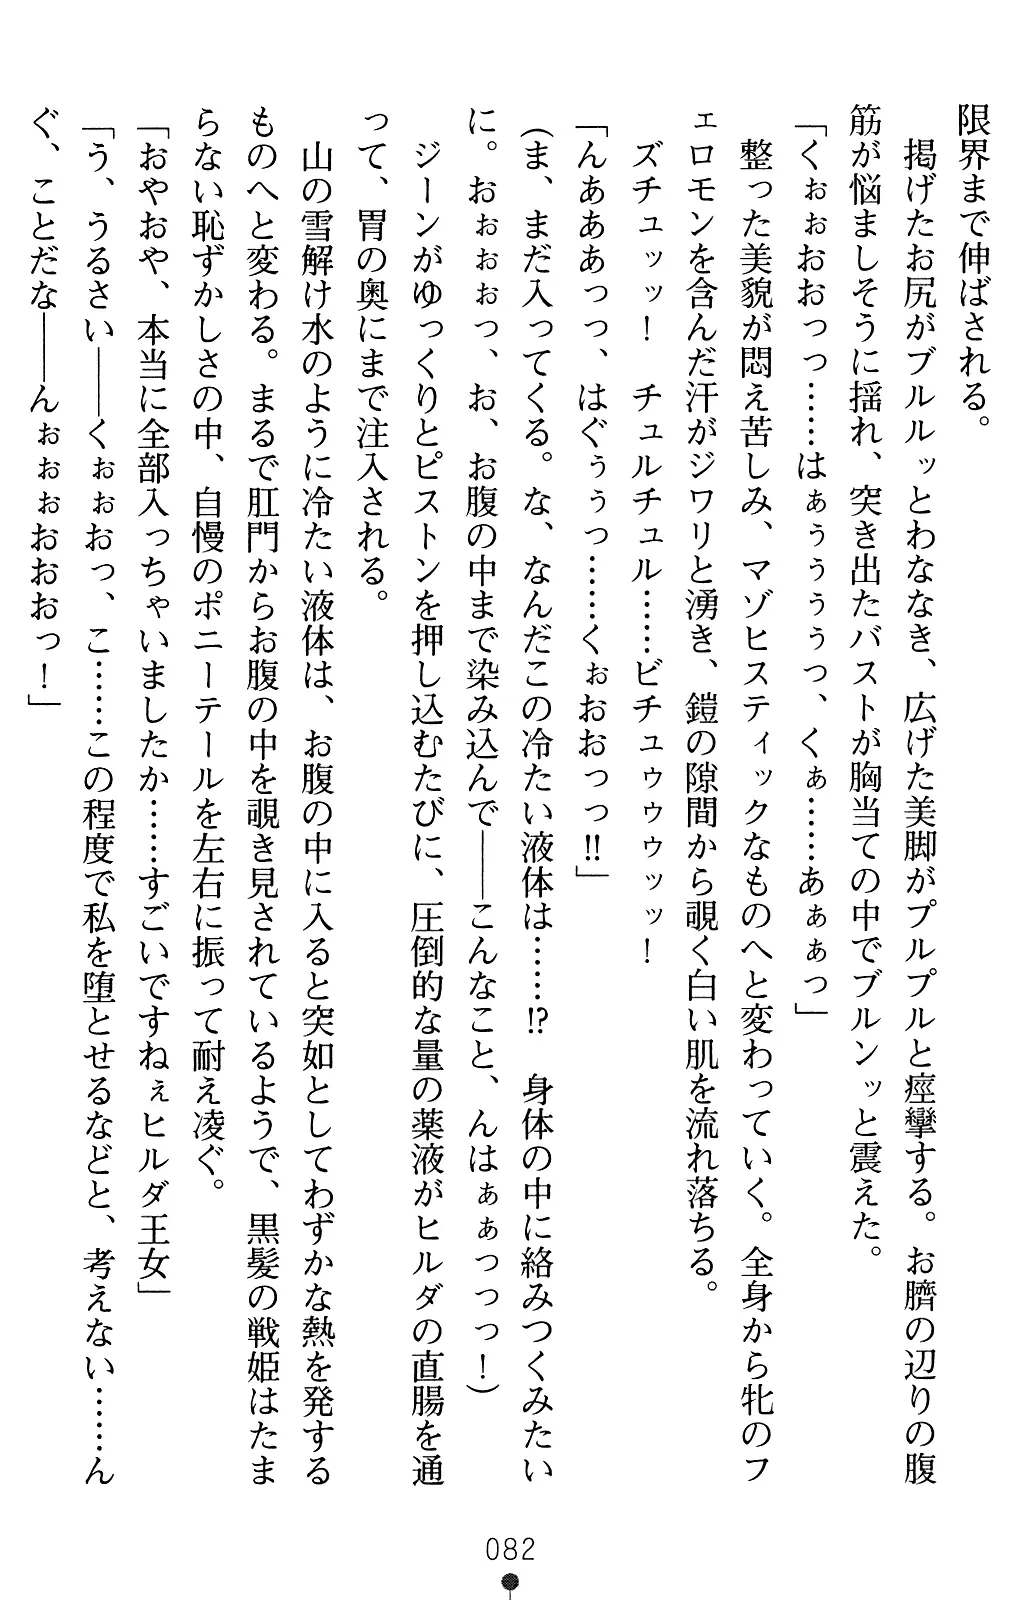 限界まで伸ばされる。
掲げたお尻がブルルッとわななき、広げた美脚がプルプルと痙攣する。お臍の辺りの腹
筋が悩ましそうに揺れ、突き出たバストが胸当ての中でブルンッと震えた。
「くぉぉおおっっ……はぁぅぅぅっ、くぁ……あぁぁっ」
整った美貌が悶え苦しみ、マゾヒスティックなものへと変わっていく。全身から牝のフ
ェロモンを含んだ汗がジワリと湧き、鎧の隙間から覗く白い肌を流れ落ちる。
ズチュッッ！　チュルチュル……ビチュゥゥゥッッ！
「んあああっっ、はぐぅぅっ……くぉおおっっ!!」
(ま、まだ入ってくる。な、なんだこの冷たい液体は……!?　身体の中に絡みつくみたい
に。おぉぉぉっ、お、お腹の中まで染み込んで――こんなこと、んはぁぁっっっ！)
ジーンがゆっくりとピストンを押し込むたびに、圧倒的な量の薬液がヒルダの直腸を通
って、胃の奥にまで注入される。
山の雪解け水のように冷たい液体は、お腹の中に入ると突如としてわずかな熱を発する
ものへと変わる。まるで肛門からお腹の中を覗き見されているようで、黒髪の戦姫はたま
らない恥ずかしさの中、自慢のポニーテールを左右に振って耐え凌ぐ。
「おやおや、本当に全部入っちゃいましたか……すごいですねぇヒルダ王女」
「う、うるさい――くぉぉおっ、こ……この程度で私を堕とせるなどと、考えない……ん
ぐ、ことだな――んぉぉぉおおおっ！」
082